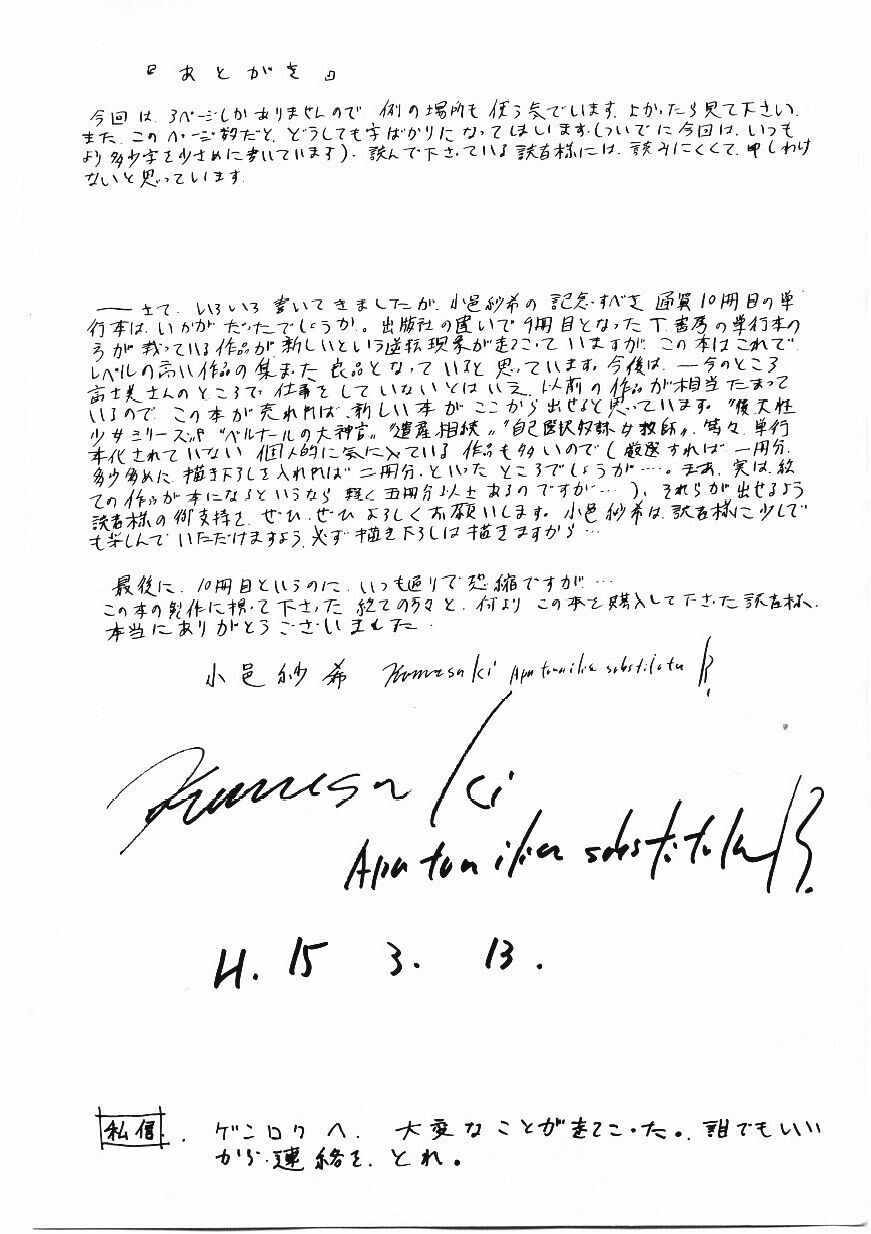 『あとがき』
今回は、3ページしかありませんので、例の場所も使う気でいます。よかったら見て下さい。
また、このページ数だと、どうしても字ばかりになってしまいます(ついでに今回は、いつも
より多少字を小さめに書いています)。読んで下さっている読者様には、読みにくくて、申しわけ
ないと思っています。
――さて、いろいろ書いてきましたが、小邑紗希の記念すべき通算10冊目の単
行本は、いかがだったでしょうか。出版社の違いで9冊目となったT書房の単行本の
方が載っている作品が新しいという逆転現象が起こっていますが、この本はこれで、
レベルの高い作品の集まった良品となっていると思っています。今後は、一今のところ
富士美さんのところで仕事をしていないとはいえ、以前の作品が相当たまって
いるので、この本が売れれば、新しい本がここから出せると思っています。〝後天性
少女シリーズ〟〝ベルナールの大神官〟〝遺産相続〟〝自己選択奴隷女教師〟等々、単行
本化されていない個人的に気に入っている作品も多いのでし厳選すれば、一冊分、
多少多めに描き下ろしを入れれば二冊分、といったところでしょうが…。まあ、実は、総
ての作品が本になるというなら軽く五冊分以上あるのですが…)、それらが出せるよう
読者様の御支持を、ぜひ、ぜひよろしくお願いします。小邑紗希は、読者様に少しで
も楽しんでいただけますよう、必ず描き下ろしは描きますから…
最後に、10冊目というのに、いつも通りで恐縮ですが…
この本の製作に携って下さった総ての方々と、何よりこの本を購入して下さった読者様、
本当にありがとうございました。
小邑紗希 Kumasaki Apatanilia substituta
Kumasaki
Apatanilia substituta
H. 15 3. 13.
私信. ゲンロクへ. 大変なことが起こった。誰でもいい
から連絡を、とれ。